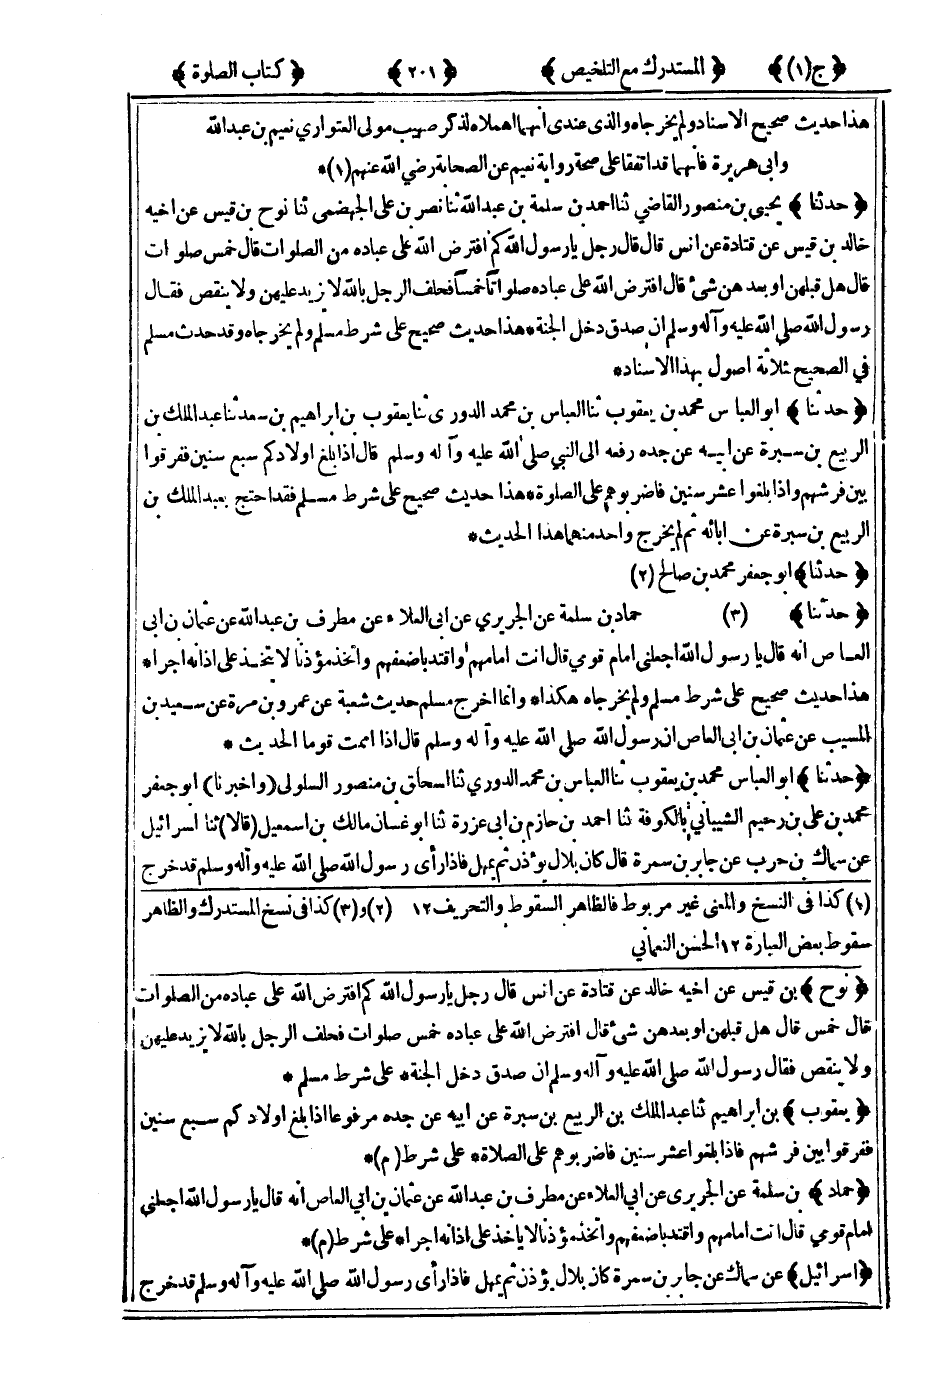 ﴿ ج(١) ﴾ ﴿ المستدرك مع التلخيص ﴾ ﴿ ٢٠١ ﴾ ﴿ كتاب الصلوة ﴾
هذا حديث صحيح الاسناد ولم يخرجاه والذى عندى أنهما اهملاه لذكر صهيب مولى العتواري نعيم بن عبد الله
وابى هريرة فانهما قد اتفقا على صحة رواية نعيم عن الصحابة رضي الله عنهم (١)*
﴿ حدثنا ﴾ يحيى بن منصور القاضي ثنا احمد بن سلمة بن عبد الله ثنا نصر بن على الجهضمى ثنا نوح بن قيس عن اخيه
خالد بن قيس عن قتادة عن انس قال قال رجل يارسول الله كم افترض الله على عباده من الصلوات قال خمس صلوات
قال هل قبلهن او بعدهن شئ قال افترض الله على عباده صلواتاً خمساً فحلف الرجل بالله لا يزيد عليهن ولا ينقص فقال
رسول الله صلى الله عليه وآله وسلم ان صدق دخل الجنة* هذا حديث صحيح على شرط مسلم ولم يخرجاه وقد حدث مسلم
في الصحيح ثلاثة اصول بهذا الاسناد*
﴿ حدثنا ﴾ ابو العباس محمد بن يعقوب ثنا العباس بن محمد الدورى ثنا يعقوب بن ابراهيم بن سعد ثنا عبد الملك بن
الربيع بن سبرة عن ابيه عن جده رفعه الى النبي صلى الله عليه وآله وسلم قال اذا بلغ اولادكم سبع سنين ففرقوا
بين فرشهم واذا بلغوا عشر سنين فاضربوهم على الصلوة* هذا حديث صحيح على شرط مسلم فقد احتج بعبد الملك بن
الربيع بن سبرة عن ابائه ثم لم يخرج واحد منهما هذا الحديث*
﴿ حدثنا ﴾ ابو جعفر محمد بن صالح (٢)
﴿ حدثنا ﴾ (٣) حماد بن سلمة عن الجريري عن ابى العلاء عن مطرف بن عبد الله عن عثمان بن ابى
العاص انه قال يا رسول الله اجعلنى امام قومي قال انت امامهم واقتد باضعفهم واتخذ مؤذنا لا يتخذ على اذانه اجرا*
هذا حديث صحيح على شرط مسلم ولم يخرجاه هكذا* وانما اخرج مسلم حديث شعبة عن عمرو بن مرة عن سعيد بن
المسيب عن عثمان بن ابى العاص ان رسول الله صلى الله عليه وآله وسلم قال اذا اممت قوما الحديث*
﴿ حدثنا ﴾ ابو العباس محمد بن يعقوب ثنا العباس بن محمد الدوري ثنا اسحاق بن منصور السلولى (واخبرنا) ابو جعفر
محمد بن على بن رحيم الشيباني بالكوفة ثنا احمد بن حازم بن ابى عزرة ثنا ابو غسان مالك بن اسمعيل (قالا) ثنا اسرائيل
عن سماك بن حرب عن جابر بن سمرة قال كان بلال يؤذن ثم يمهل فاذا رأى رسول الله صلى الله عليه وآله وسلم قد خرج
(١) كذا فى النسخ والمعنى غير مربوط فالظاهر السقوط والتحريف ١٢ (٢) و(٣) كذا فى نسخ المستدرك والظاهر
سقوط بعض العبارة ١٢ الحسن النعمانى
﴿ نوح ﴾ بن قيس عن اخيه خالد عن قتادة عن انس قال رجل يارسول الله كم افترض الله على عباده من الصلوات
قال خمس قال هل قبلهن او بعدهن شئ قال افترض الله على عباده خمس صلوات فحلف الرجل بالله لا يزيد عليهن
ولا ينقص فقال رسول الله صلى الله عليه وآله وسلم ان صدق دخل الجنة* على شرط مسلم*
﴿ يعقوب ﴾ بن ابراهيم ثنا عبد الملك بن الربيع بن سبرة عن ابيه عن جده مرفوعا اذا بلغ اولادكم سبع سنين
ففرقوا بين فرشهم فاذا بلغوا عشر سنين فاضربوهم على الصلاة* على شرط (م)*
﴿ حماد ﴾ بن سلمة عن الجريرى عن ابي العلاء عن مطرف بن عبد الله عن عثمان بن ابي العاص انه قال يارسول الله اجعلنى
امام قومي قال انت امامهم واقتد باضعفهم واتخذ مؤذنا لا ياخذ على اذانه اجرا* على شرط (م)*
﴿ اسرائيل ﴾ عن سماك عن جابر بن سمرة كان بلال يؤذن ثم يمهل فاذا رأى رسول الله صلى الله عليه وآله وسلم قد خرج